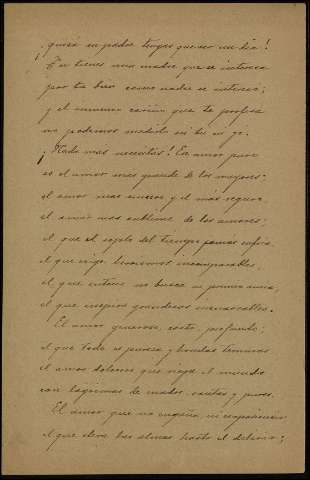 ¡ quizá su padre tengas que ser un dia!
¡Tu tienes una madre que se interesa
por tu bien como nadie se interesa;
y el inmenso cariño que te profesa
no podemos medirlo ni tu ni yo.
¡Nada mas necesitas! Su amor puro
es el amor mas grande de los mayores:
el amor mas sincero y el más seguro,
el amor mas sublime de los amores;
el que al soplo del tiempo jamas enfria,
el que exige heroismos incomparables,
el que entero no busca su primacia,
el que inspira grandezas inenarrables.
El amor generoso, casto, profundo;
el que todo es pureza y hondas ternuras
el amor doloroso que riega el mundo
con lagrimas de madre, santas y puras.
El amor que no engaña, ni
el que eleva las almas hasta el delirio;